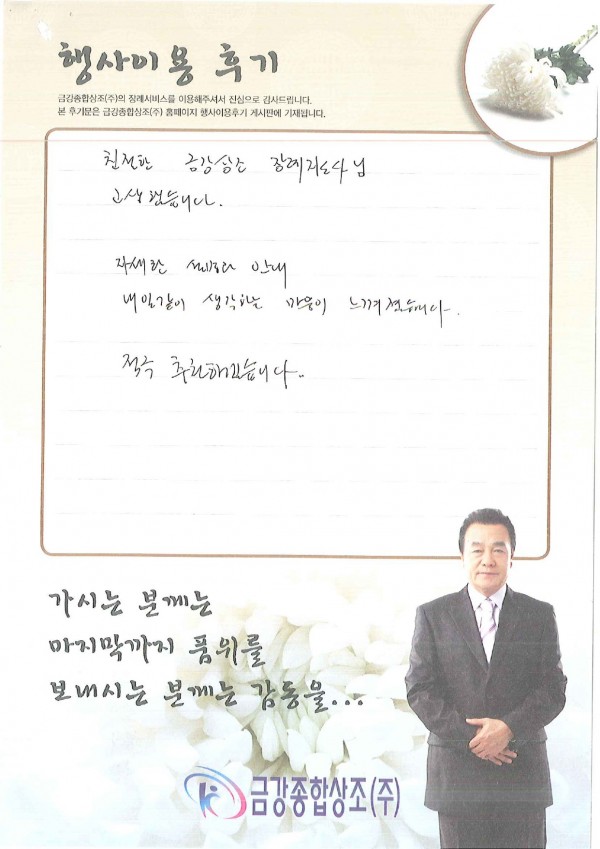 행사이용 후기
금강종합상조(주)의 장례서비스를 이용해주셔서 진심으로 감사드립니다.
본 후기문은 금강종합상조(주) 홈페이지 행사이용후기 게시판에 기재됩니다.
친절한 금강상조 장례지도사님
고생했습니다.
자세한 안내
내일같이 생각하는 마음이 느껴졌습니다.
적극 추천하겠습니다..
가시는 분께는
마지막까지 품위를
보내시는 분께는 감동을...
금강종합상조(주)